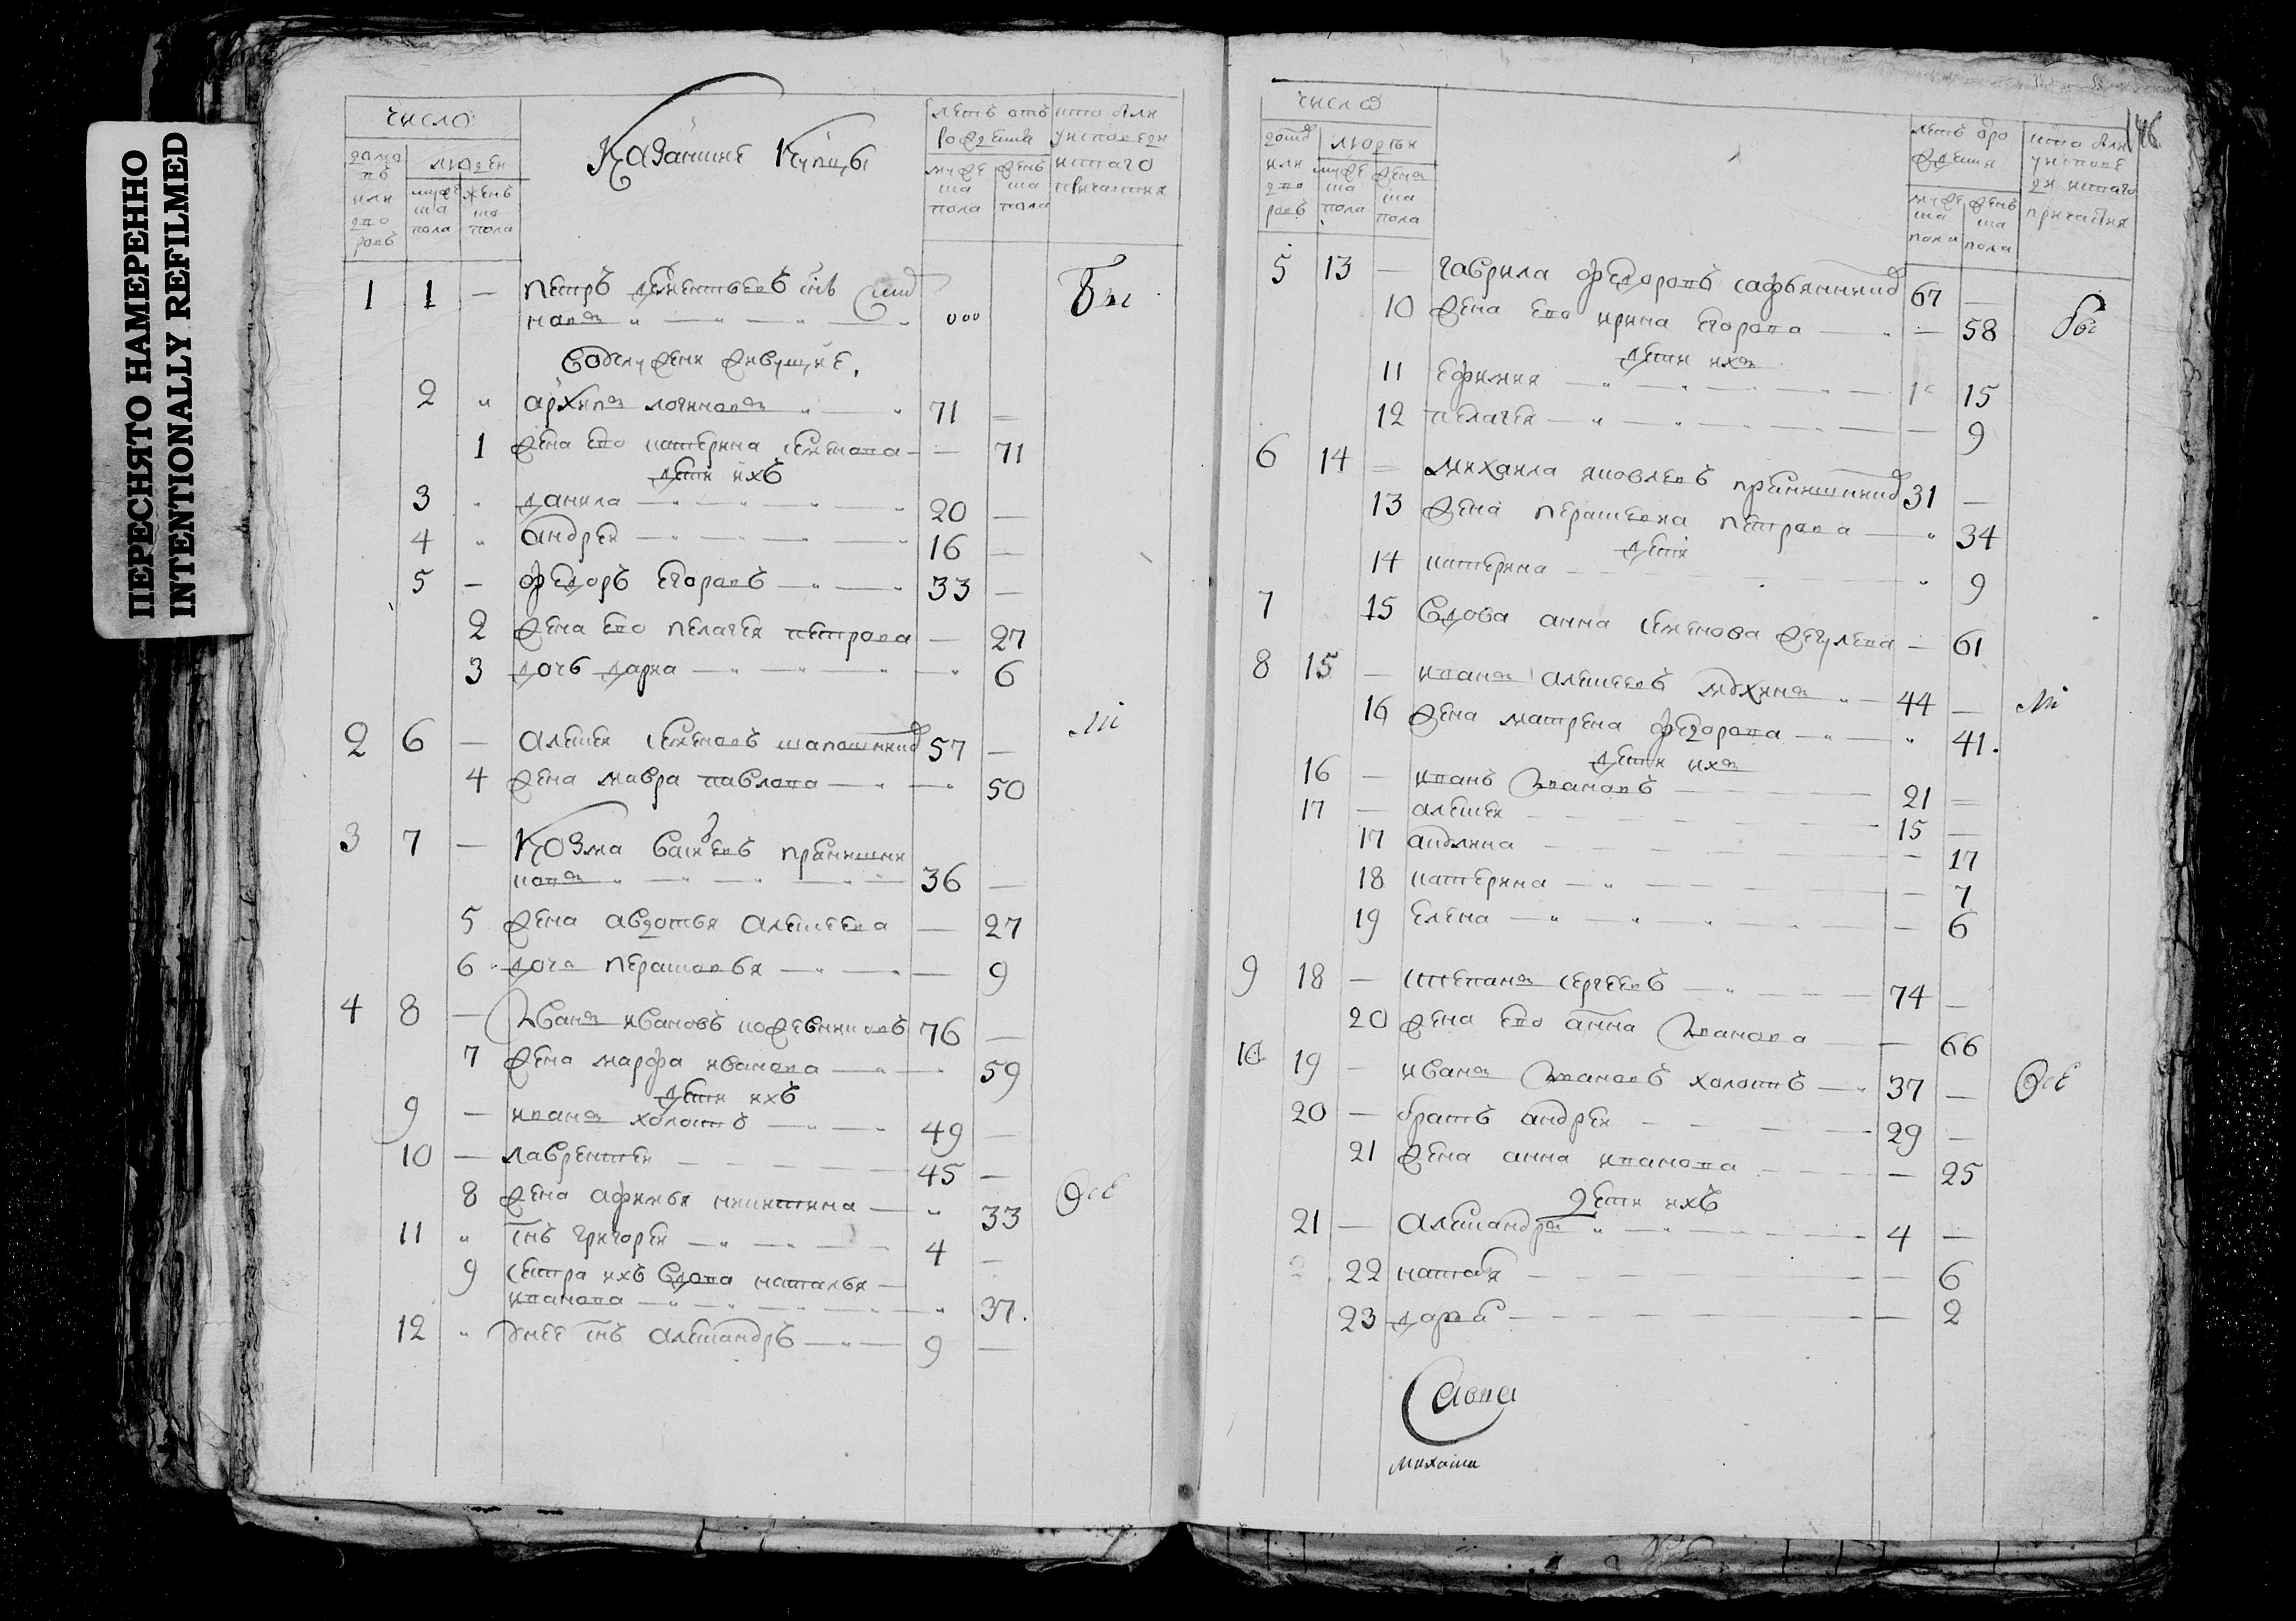 ПЕРЕСНЯТО НАМЕРЕННО
INTENTIONALLY REFILMED
число
домовъ или дворовъ
людей
мужеска пола
женска пола
Казанские Купцы
летъ отъ рождения
мужеска пола
женска пола
кто былъ у исповеди и святаго причастия
1 1 — Петръ Дементьевъ снъ
новъ 000
В услужении живущие.
2 „ архипъ логиновъ 71 —
1 жена ево катерина семенова — 71
дети ихъ
3 „ данила 20 —
4 „ андрей 16 —
5 — федоръ егоровъ 33 —
2 жена ево пелагея петрова — 27
3 дочь дарья 6
2 6 — алексей семеновъ шапошников 57 —
4 жена мавра павлова 50
3 7 — Козма васильевъ прянишни
ковъ 36 —
5 жена авдотья алексеева — 27
6 дочь перасковья — 9
4 8 — Иванъ ивановъ кожевниковъ 76 —
7 жена марфа иванова 59
дети ихъ
9 — иванъ холостъ 49 —
10 — лаврентей 45 —
8 жена афимья никитина 33
11 „ снъ григорей 4 —
9 сестра ихъ вдова наталья
иванова 37.
12 „ у нее снъ александръ 9 —
146
число
домовъ или дворовъ
людей
мужеска пола
женска пола
летъ от рождения
мужеска пола
женска пола
кто былъ у исповеди и святаго причастия
5 13 — гаврила федоровъ сафьянников 67 —
10 жена ево ирина егорова — 58
дети ихъ
11 ефимия 15
12 пелагея — 9
6 14 — михаила яковлевъ прянишников 31 —
13 жена перасковия петрова 34
дети
14 катерина 9
7 15 Вдова анна семенова — 61
8 15 — иванъ алексеевъ 44 —
16 жена матрена федорова 41.
дети ихъ
16 — иванъ Ивановъ 21 —
17 — алексей 15 —
17 акулина — 17
18 катерина — 7
19 елена — 6
9 18 — степанъ сергеевъ 74 —
20 жена ево анна Иванова — 66
10 19 — иванъ Ивановъ холостъ 37 —
20 — братъ андрей 29 —
21 жена анна иванова — 25
Дети ихъ
21 — александръ 4 —
22 наталья — 6
23 дарья — 2
Савва
михаила